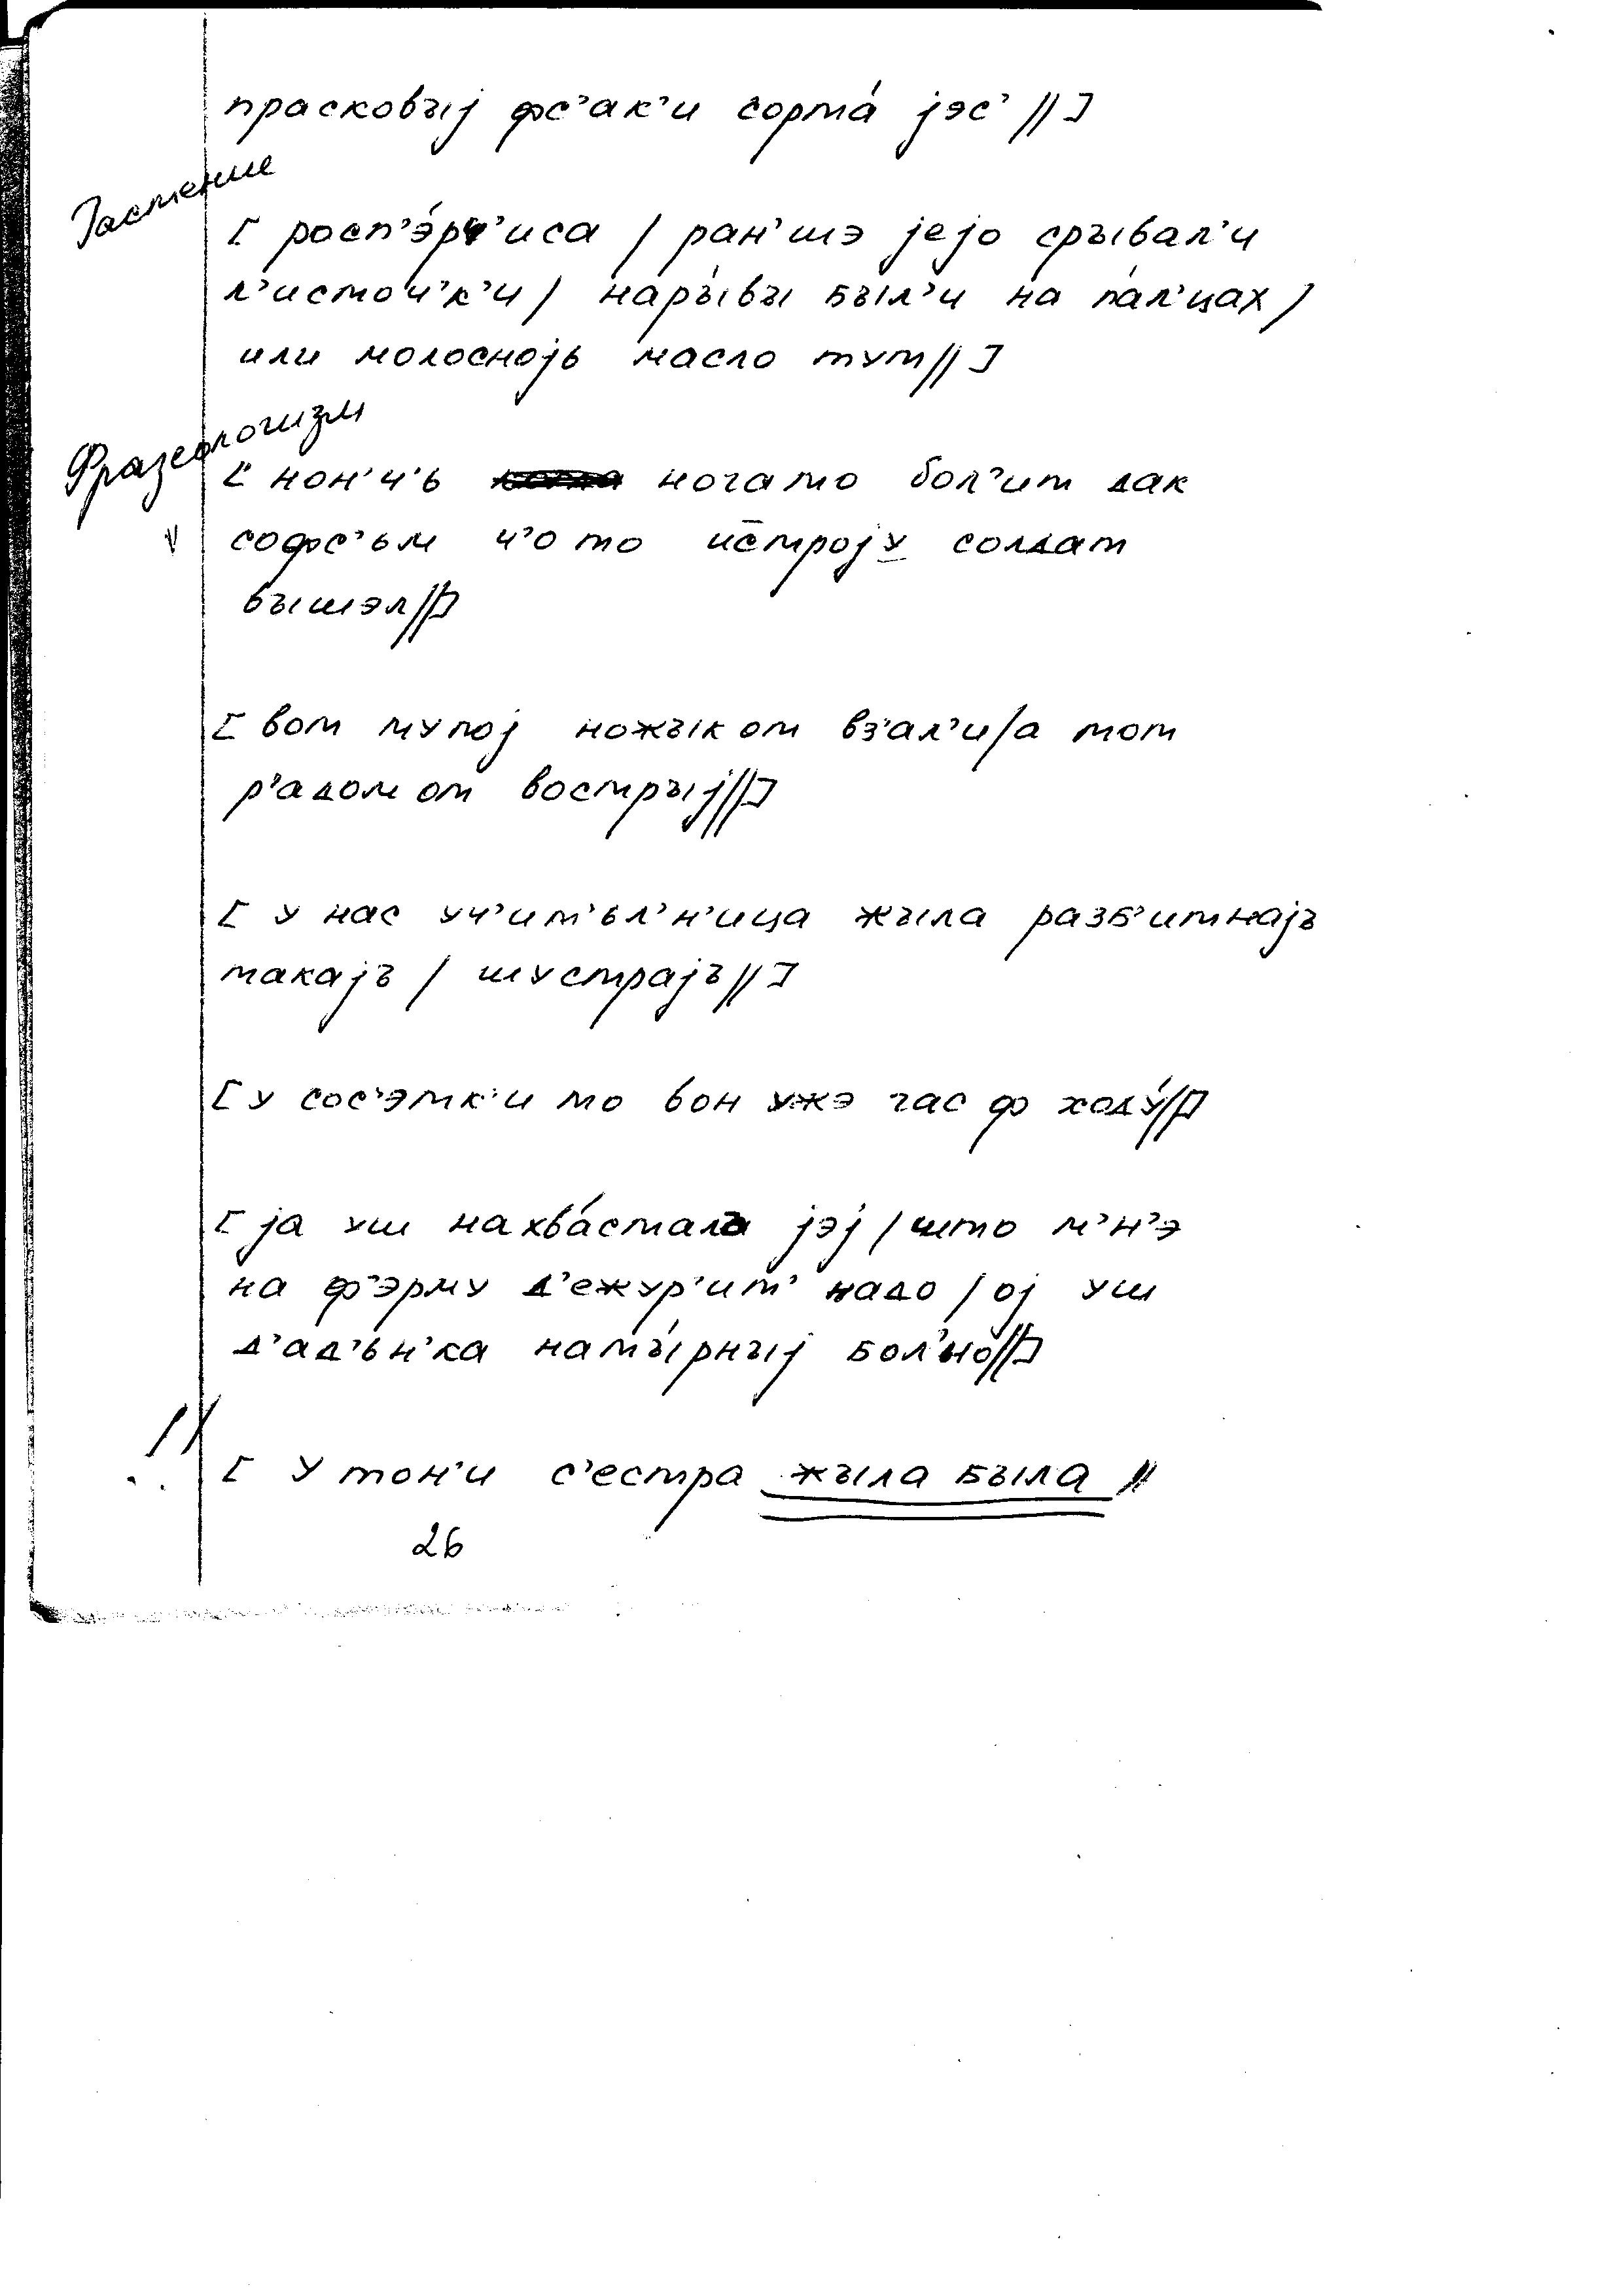 прасковыj фс'ак'и сорта́ jэс' //]
Растение
[ росп'э́рч'иса / ран'шэ jejо срывал'и
л'источ'к'и / нары́вы был'и на па́л'цах /
или молосноjь масло тут// ]
Фразеологизм
[ нон'ч'ь ногато бол'ит дак
v софс'ьм ч'о то ис̅троjу солдат
вышэл//]
[ вот тупоj ножыком вз'ал'и/а тот
р'адом от вострыj//]
[ у нас уч'ит'ьл'н'ица жыла разб'итнаjъ
такаjъ / шустраjъ// ]
[ у сос'этк'и то вон ужэ час ф ходу́//]
[ jа уш нахва́стала jэj / што м'н'э
на ф'эрму д'ежур'ит' надо / оj уш
д'ад'ьн'ка наты́рныj бол'но//]
!! [ У тон'и с'естра жыла была //
26